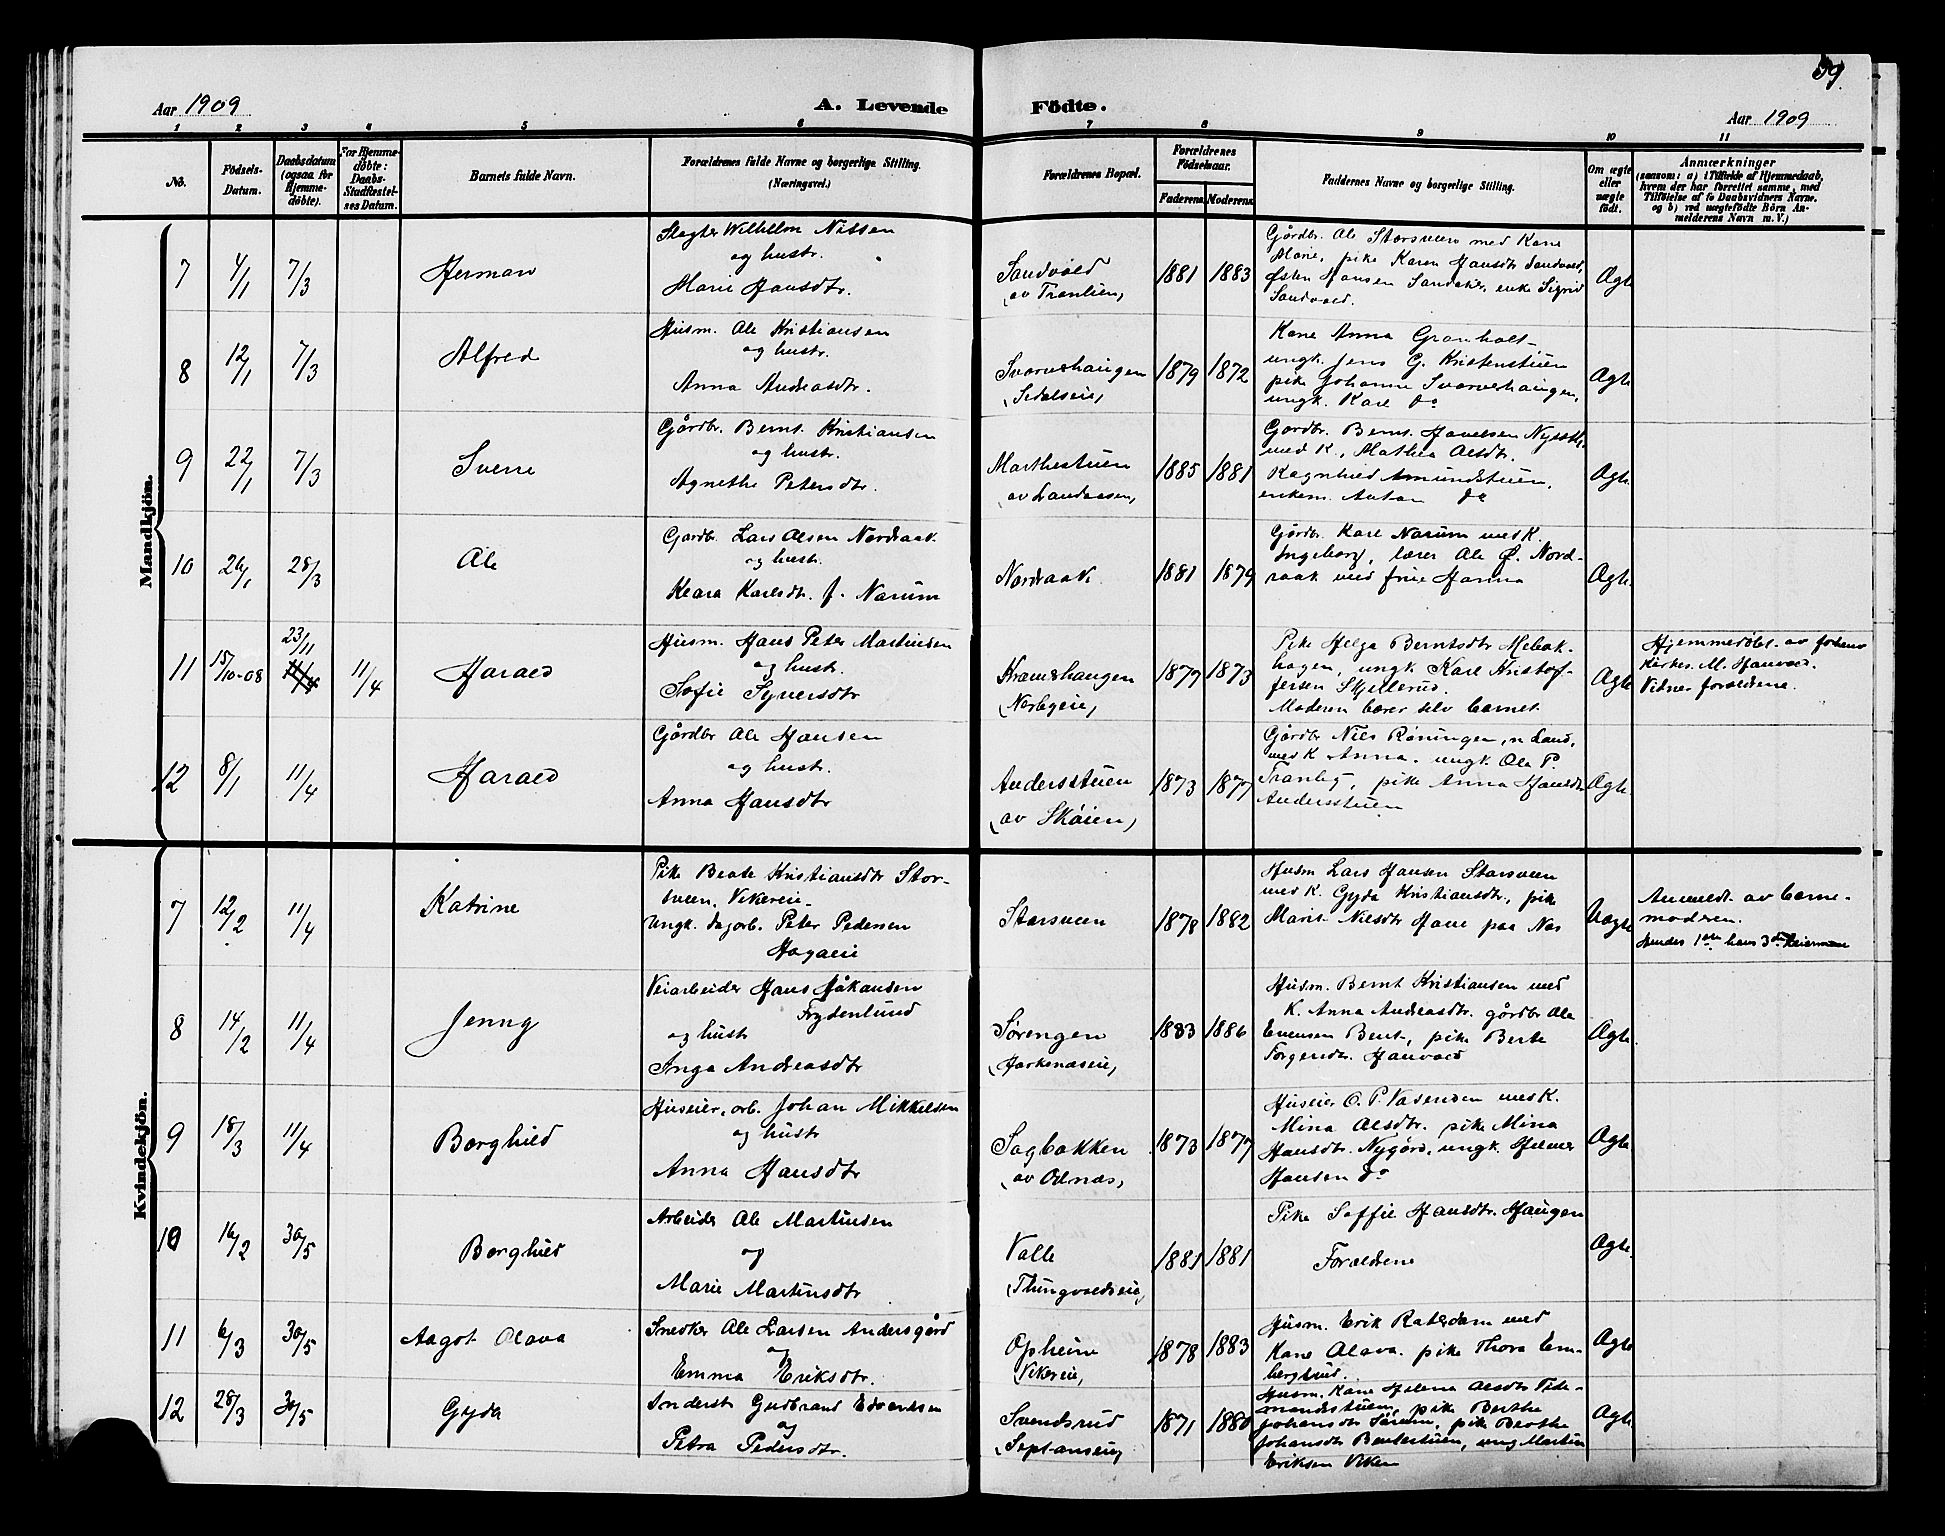 59.
Aar 1909
A. Levende
Födte.
Aar 1909
1 2 3 4 5 6 7 8 9 10 11
No.
Födsels-
Datum.
Daabsdatum
(ogsaa for
Hjemme-
döbte).
For Hjemme-
döbte:
Daabs-
Stadfæstel-
ses Datum.
Barnets fulde Navn.
Forældrenes fulde Navne og borgerlige Stilling.
(Næringsvei.)
Forældrenes Bopæl.
Forældrenes
Födselsaar.
Faderens
Moderens
Faddernes Navne og borgerlige Stilling.
Om ægte
eller
uægte
født.
Anmærkninger
(saasom: a) i Tilfælde af Hjemmedaab,
hvem der har forrettet samme, med
Tilföielse af to Daabsvidners Navne.
og b) ved uægtefödte Börn An-
melderens Navn m. V.)
Mandkjön.
7 4/1 7/3 Herman
Slagter Wilhelm Nilsen
og hustr.
Marie Hansdtr.
Sandvold
(av Tranlien)
1881 1883
Gårdbr. Ole Storsveen med Kone
Marie, pike Karen Hansdtr Sandvold,
Østen Hansen Sandaker, enke Sigrid
Sandvold.
Ægte
8 12/1 7/3 Alfred
Husm. Ole Kristiansen
og hustr.
Anna Andreasdtr.
Svarverhaugen
1879 1872
Kone Anna Granholt
ungk. Jens G. Kristenstuen
pike Johanne Svarverhaugen,
ungk. Karl do
Ægte
9 22/1 7/3 Sverre
Gårdbr. Bernt Kristiansen
og hustr.
Agnethe Petersdtr.
Marthestuen
(av Landaasen)
1885 1881
med K., Mathea Olsdtr.
Ragnhild Amundstuen,
enkem. Anton do
Ægte
10 26/1 28/3 Ole
Gårdbr. Lars Olsen Nordraak
og hustr.
Klara Karlsdtr. f. Narum
Nordraak.
1881 1879
Gårdbr. Karl Narum med K.
Ingeborg, lærer Ole Ø. Nord-
raak med frue Hanna
Ægte.
11 15/10-08 23/11 11/4 11/4 Harald
Husm. Hans Peter Martinsen
og hustr.
Sofie Syversdtr
Kramshaugen
1879 1873
Pike Helga Berntsdtr Melbak-
hagen, ungk Karl Kristof-
fersen Skjellerud.
Moderen bærer selv barnet
Ægte
Hjemmedøbt av
Kirkes. M. Haavold.
Vidner forældrene.
12 8/1 11/4 Harald
Gårdbr Ole Hansen
og hustr.
Anna Hansdtr
Andersstuen
(av Skøien)
1873 1877
Gårdbr Nils Røningen, n Land,
med K Anna. ungk Ole P.
Tranby, pike Anna Hansdtr
Andersstuen
Ægte.
Kvindekjön.
7 12/2 11/4 Katrine
Pike Beate Kristiansdtr Stor-
sveen, Vikereie.
Ungk. dagarb. Peter Pedersen
Hagaeie
Storsveen
1878 1882
Husm Lars Hansen Storsveen
med K. Gyda Kristiansdtr, pike
Marit Nilsdtr
Uægte
Anmeldt av barne-
moderen.
Hendes 1ste hans 3die leiermaal
8 14/2 11/4 Jenny
Veiarbeider Hans Håkansen
Frydenlund
og hustr
Inga Andreasdtr
Sørengen
1883 1886
Husm. Bernt Kristiansen med
K. Anna Andreasdtr. gårdbr Ole
Evensen Bent, pike Berte
Torgersdtr. Haavold
Ægte.
9 18/3 11/4 Borghild
Huseier, arb. Johan Mikkelsen
og hustr
Anna Hansdtr
Sagbakken
(av Odnæs)
1873 1877
Huseier O. P. Vasenden med K.
Mina Olsdtr. pike Mina
Hansdtr. Nygård, ungk. Hilmar
Hansen do
Ægte
10 16/2 30/5 Borghild
Arbeider Ole Martinsen
og
Marie Martinsdtr
Valle
1881 1881
Pike Soffie Hansdtr. Haugen
Forældrene
Ægte.
11 6/3 30/5 Aagot Olava
Snedker Ole Larsen Andersgård
og
Emma Eriksdtr.
Opheim
(Vikereie)
1878 1883
Husm. Erik Raterdam med
Kone Olava. pike Thora Em-
berglund.
Ægte
12 28/3 30/5 Gyda
Inderst Gudbrand Edvardsen
og
Petra Pedersdtr.
Svendsrud
1871 1880
Husm. Kone Helena Olsdtr Tide-
mandstuen, pike Berthe
Johansdtr Sørum, pike Berthe
Johansdtr Bentestuen, ung Martin
Eriksen Viken
Ægte